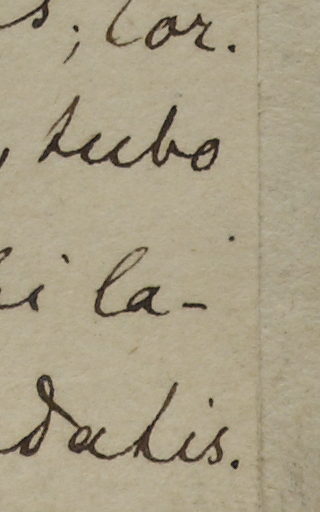 s; cor.
, tubo
i la-
datis.